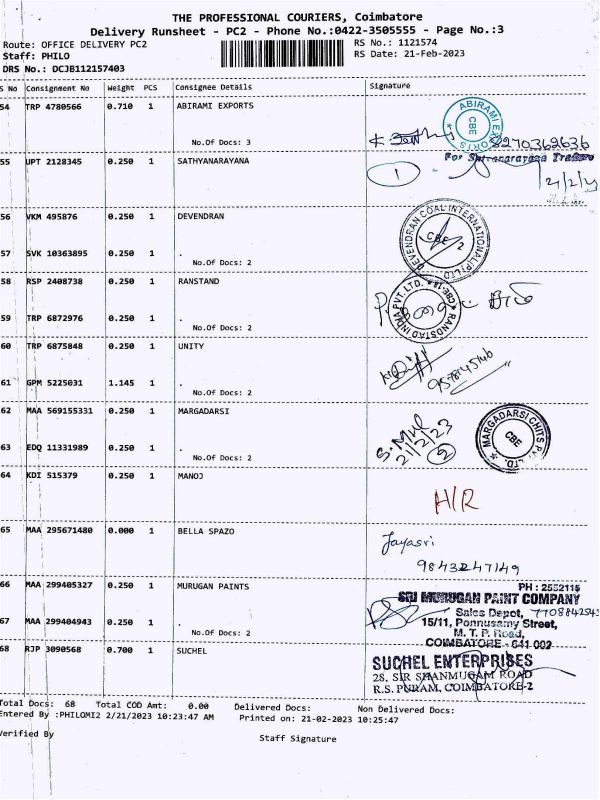 THE PROFESSIONAL COURIERS, Coimbatore
Delivery Runsheet - PC2 - Phone No.:0422-3505555 - Page No.:3
Route: OFFICE DELIVERY PC2 RS No.: 1121574
Staff: PHILO RS Date: 21-Feb-2023
DRS No.: DCJB112157403
S No Consignment No Weight PCS Consignee Details Signature
54 TRP 4780566 0.710 1 ABIRAMI EXPORTS
ABIRAMI EXPORTS CBE
No.Of Docs: 3 8270362636
55 UPT 2128345 0.250 1 SATHYANARAYANA
1 21/2/23
56 VKM 495876 0.250 1 DEVENDRAN
DEVENDRAN COAL INTERNATIONAL (P) LTD CBE 2
57 SVK 10363895 0.250 1 .
No.Of Docs: 2
58 RSP 2408738 0.250 1 RANSTAND
RANDSTAD INDIA PVT. LTD. CBE-18
59 TRP 6872976 0.250 1 .
No.Of Docs: 2
60 TRP 6875848 0.250 1 UNITY
61 GPM 5225031 1.145 1 .
No.Of Docs: 2
62 MAA 569155331 0.250 1 MARGADARSI
21/2/23 2
MARGADARSI CHITS PVT. LTD. CBE
63 EDQ 11331989 0.250 1 .
No.Of Docs: 2
64 KDI 515379 0.250 1 MANOJ
H/R
65 MAA 295671480 0.000 1 BELLA SPAZO
Jayasri
9843247149
66 MAA 299405327 0.250 1 MURUGAN PAINTS
PH : 2552115
SRI MURUGAN PAINT COMPANY
Sales Depot,
15/11, Ponnusamy Street,
M. T. P. Road,
COIMBATORE - 641 002
67 MAA 299404943 0.250 1 .
No.Of Docs: 2
68 RJP 3090568 0.700 1 SUCHEL
SUCHEL ENTERPRISES
28, SIR SHANMUGAM ROAD
R.S. PURAM, COIMBATORE-2
Total Docs: 68 Total COD Amt: 0.00 Delivered Docs: Non Delivered Docs:
Entered By :PHILOMI2 2/21/2023 10:23:47 AM Printed on: 21-02-2023 10:25:47
Verified By
Staff Signature